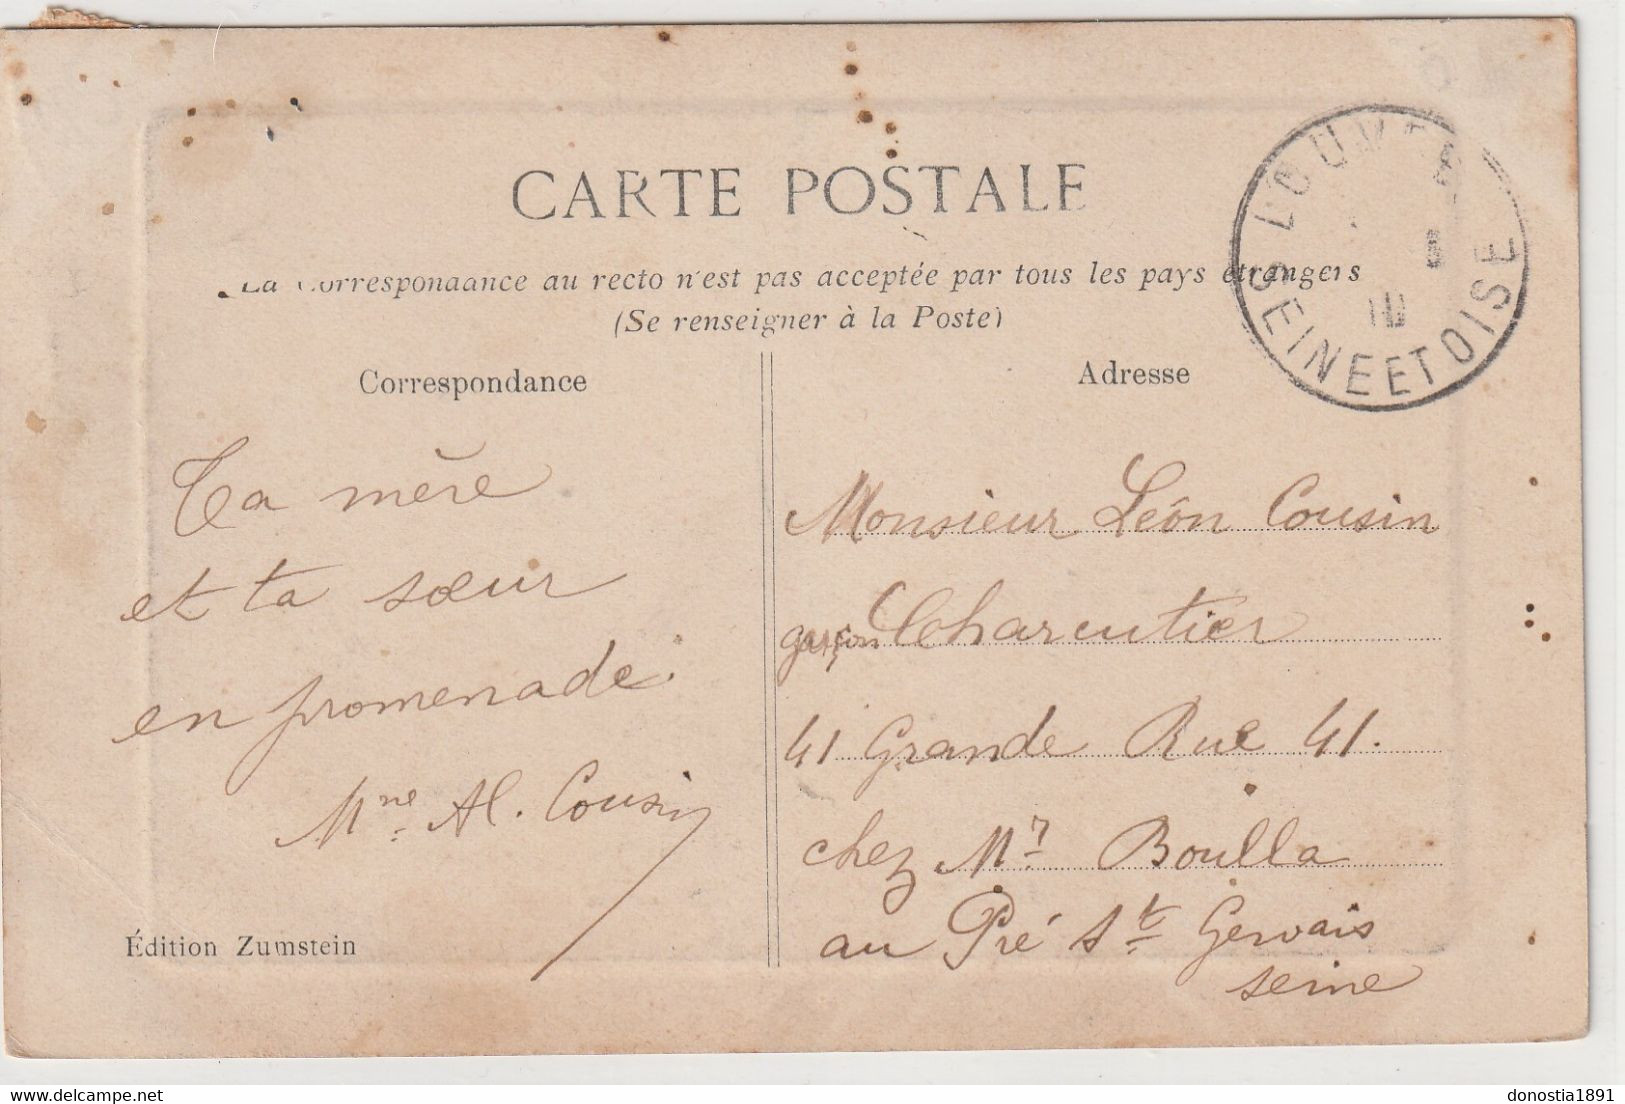 CARTE POSTALE
La Correspondance au recto n'est pas acceptée par tous les pays étrangers
(Se renseigner à la Poste)
Correspondance
Ta mère
et ta sœur
en promenade.
Mme Al. Cousin
Édition Zumstein
Adresse
Monsieur Léon Cousin
garçon Charcutier
41 Grande Rue 41.
chez Mr Boulla
au Pré St Gervais
seine
SEINE ET OISE
10
donostia1891